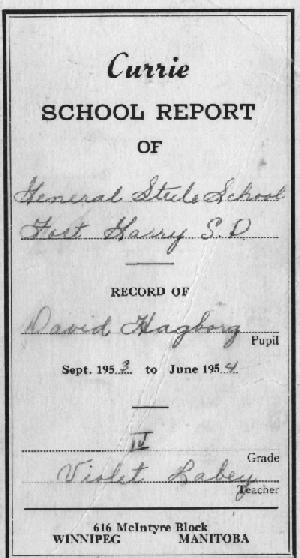 Currie
SCHOOL REPORT
OF
General Steele School
Fort Garry S.D.
RECORD OF
David Hagborg
Pupil
Sept. 1953 to June 1954
IV
Grade
Violet Labey
Teacher
616 McIntyre Block
WINNIPEG MANITOBA